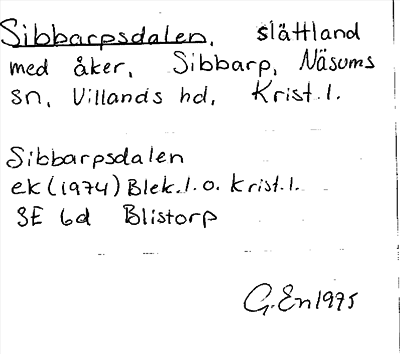 Sibbarpsdalen, slättland
med åker, Sibbarp, Näsums
sn, Villands hd, Krist. l.
Sibbarpsdalen
ek (1974) Blek. l. o. Krist. l.
SE 6d Blistorp
G. En 1975